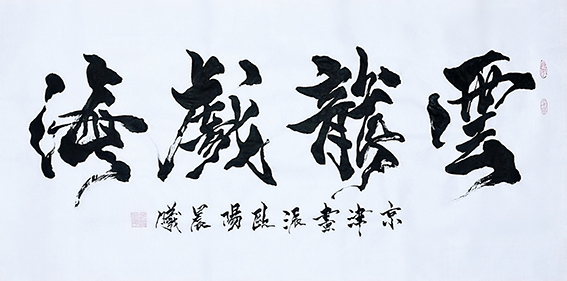 雲龍戲海
京津畫派歐陽晨曦